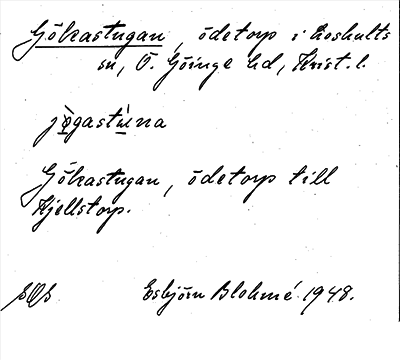 Gökastugan, ödetorp i Loshults
sn, Ö. Göinge hd, Krist. l.
jøgastuna
Gökastugan, ödetorp till
Kjellstorp.
Esbjörn Blohmé 1948.